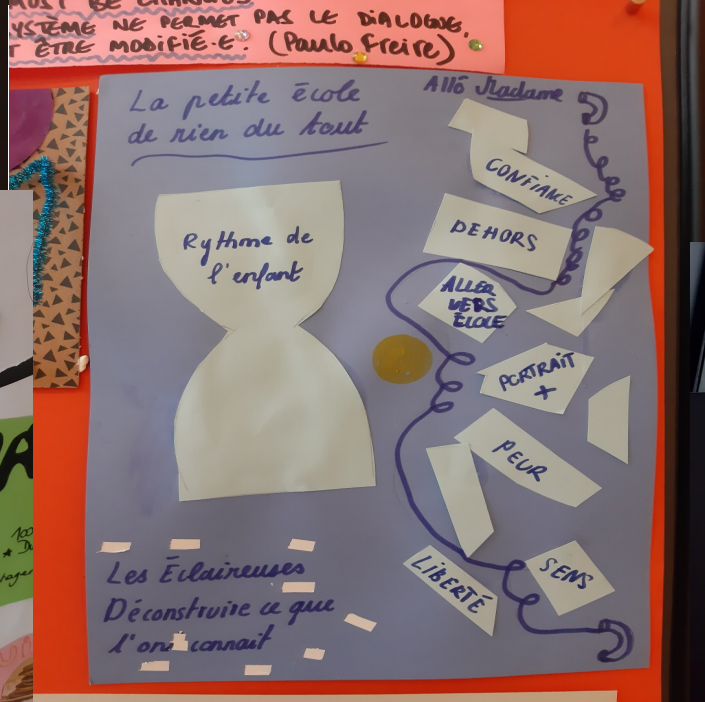 MUST BE CHANGED
SYSTÈME NE PERMET PAS LE DIALOGUE,
T ÊTRE MODIFIÉ.E. (Paulo Freire)
La petite école
de rien du tout
Allô Madame
CONFIANCE
DEHORS
Rythme de
l'enfant
ALLER
VERS
ÉCOLE
PORTRAIT
+
PEUR
LIBERTÉ
SENS
Les Éclaireuses
Déconstruire ce que
l'on connait
100